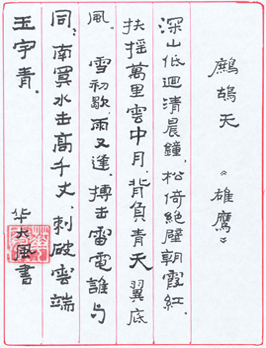 鹧鸪天 《雄鹰》
深山低迴清晨鐘，松倚絶壁朝霞紅，
扶摇萬里雲中月，背负青天翼底
風。 雪初歇，雨又逢，搏击雷電誰与
同；南冥水击高千丈，刺破雲端
玉宇青．
华大風書